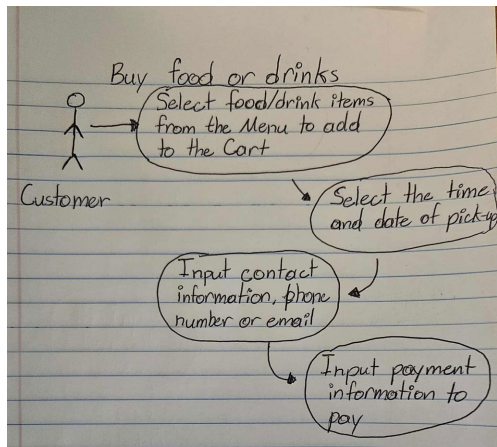 Buy food or drinks
Select food/drink items
from the Menu to add
to the Cart
Customer
Select the time
and date of pick-up
Input contact
information, phone
number or email
Input payment
information to
pay